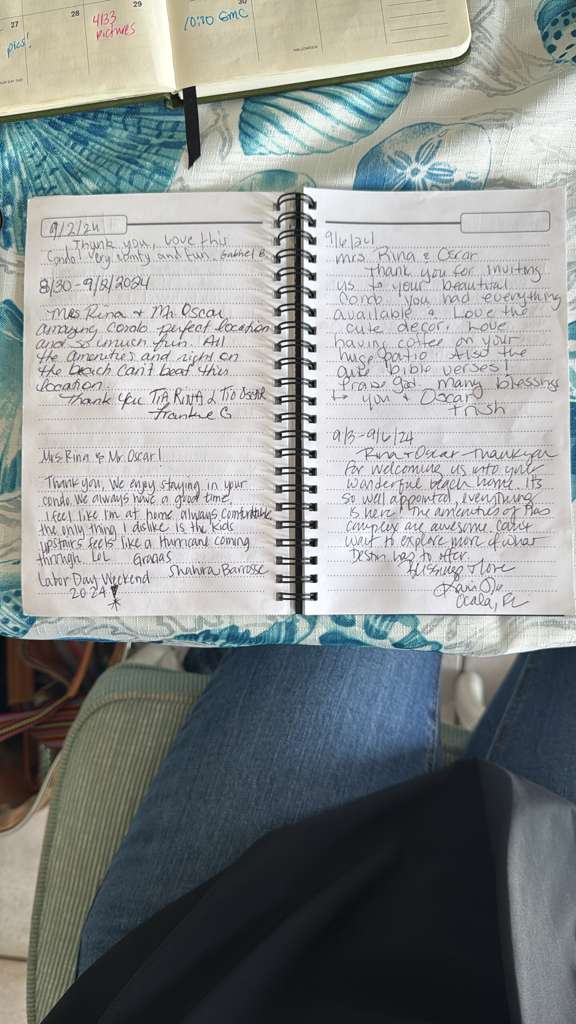 27
28
30
pics!
4133
pictures
10:30 GMC
HALLOWEEN
9/2/24
Thank you, Love this
Condo! Very comfy and fun. Gabriel B.
8/30-9/2/2024
Mrs Rina & Mr. Oscar
amazing condo perfect location
and so much fun. All
the amenities and right on
the beach can't beat this
location.
Thank you TIA RINA & Tio Oscar
Frankie G
Mrs. Rina & Mr. Oscar!
Thank you, We enjoy staying in your
condo. We always have a good time.
I feel like I'm at home always comfortable
the only thing I dislike is the kids
upstairs feels like a Hurricane coming
through. LOL Gracias
Labor Day Weekend Shahira Barrosse
2024
9/6/24
Mrs. Rina & Oscar
Thank you for inviting
us to your beautiful
Condo. You had everything
available & Love the
cute decor. Love
having coffee on your
huge patio. Also the
cute bible verses!
Praise god many blessings
to you & Oscar
Trish
9/3-9/6/24
Rina & Oscar - Thank you
for welcoming us into your
wonderful beach home. It's
so well appointed, everything
is here! The amenities of this
complex are awesome. Can't
wait to explore more of what
Destin has to offer.
Blessings & love
Ocala, FL